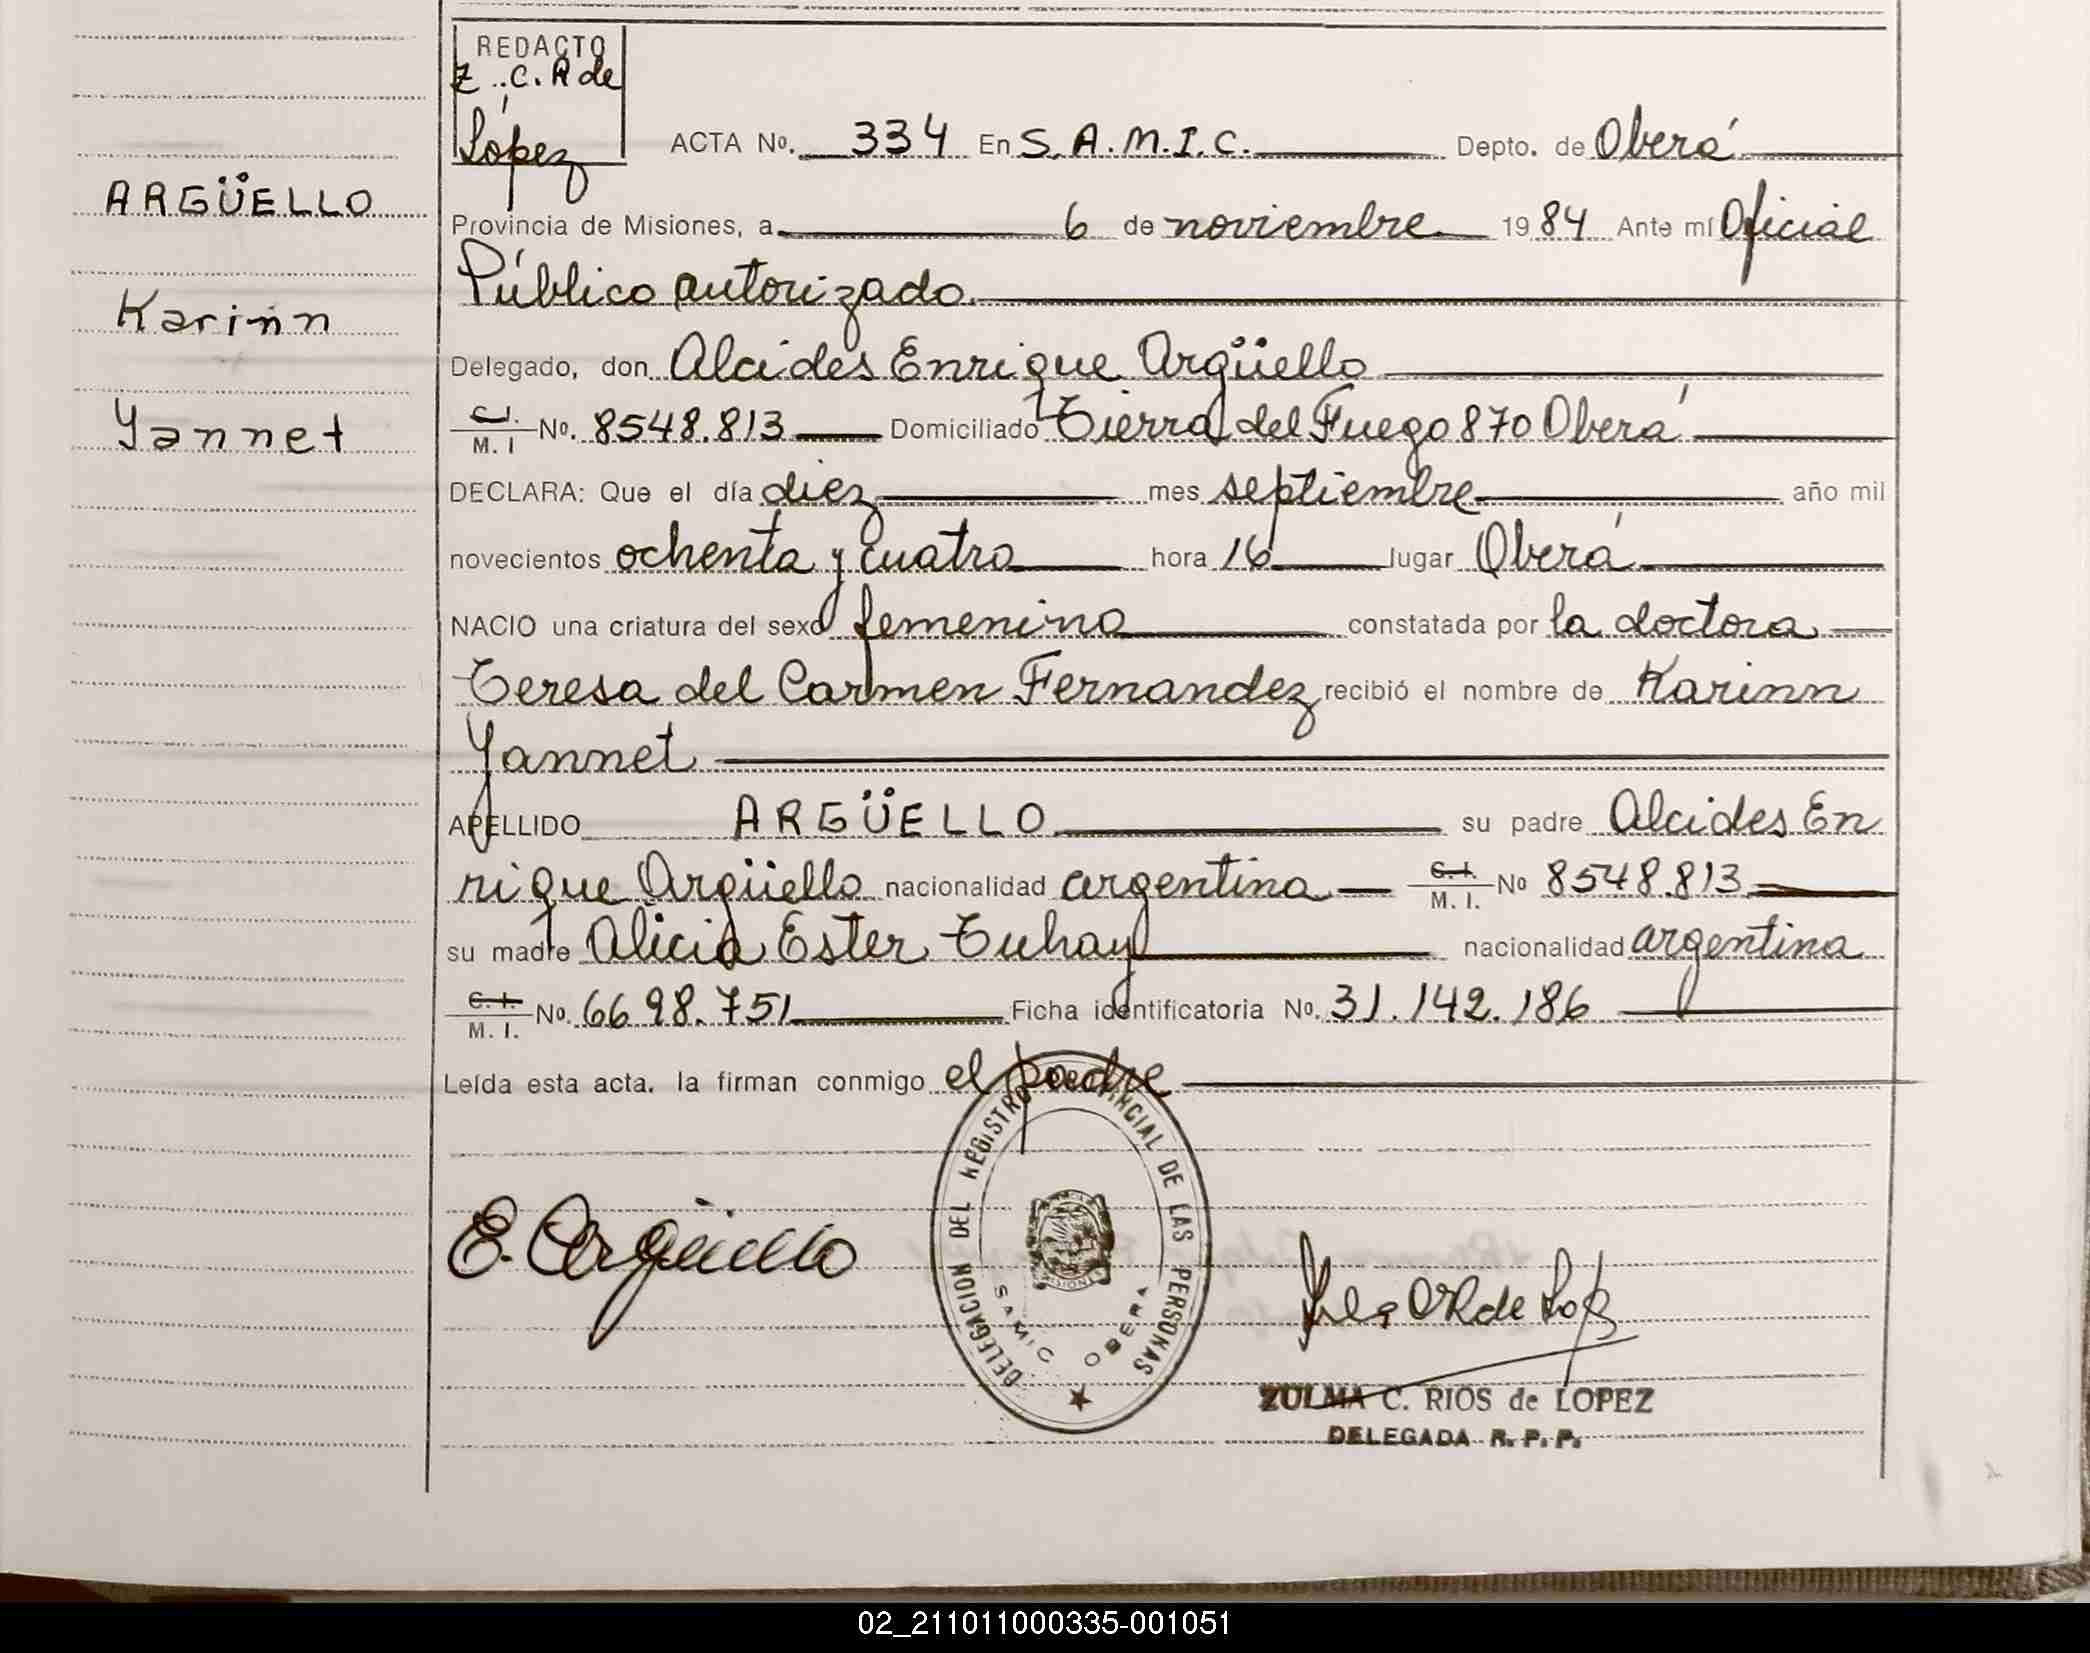 REDACTO
Z. C. R de
López
ACTA No. 334 En S.A.M.I.C. Depto. de Oberá
Provincia de Misiones, a 6 de noviembre 1984 Ante mí Oficial
Público autorizado
ARGÜELLO
Karinn
Yannet
Delegado, don Alcides Enrique Argüello
C.I. M. I No. 8548.813 Domiciliado Tierra del Fuego 870 Oberá
DECLARA: Que el día diez mes septiembre año mil
novecientos ochenta y cuatro hora 16 lugar Oberá
NACIO una criatura del sexo femenino constatada por la doctora
Teresa del Carmen Fernandez recibió el nombre de Karinn
Yannet
APELLIDO ARGÜELLO su padre Alcides En
rique Argüello nacionalidad argentina C.I. M. I. No 8548.813
su madre Alicia Ester Tuhay nacionalidad argentina
C.I. M. I. No. 6698.751 Ficha identificatoria No. 31.142.186
Leída esta acta. la firman conmigo el padre
E. Argüello
DELEGACION DEL REGISTRO PROVINCIAL DE LAS PERSONAS
SAMIC OBERA
MISIONES
ZULMA C. RIOS de LOPEZ
DELEGADA R. P. P.
02_211011000335-001051